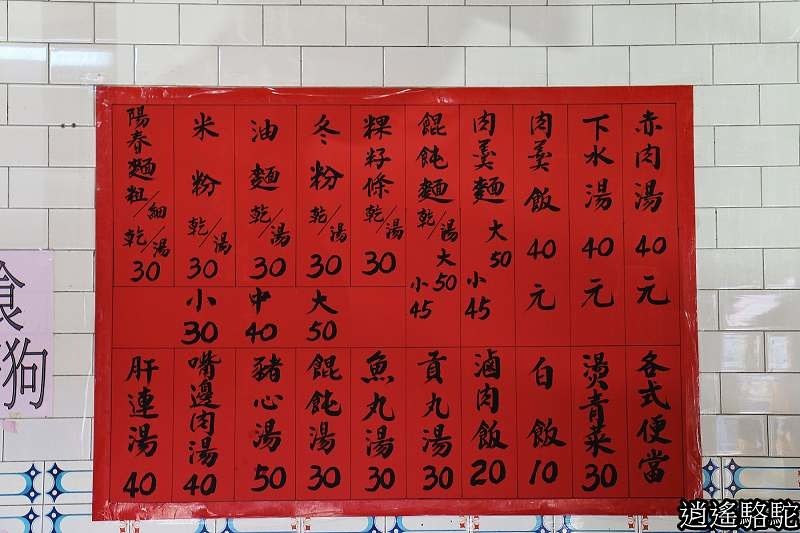 赤肉湯 40元
下水湯 40元
肉羹飯 40元
肉羹麵 大50 小45
餛飩麵 乾/湯 大50 小45
粿仔條 乾/湯 30
冬粉 乾/湯 30
油麵 乾/湯 30
米粉 乾/湯 30
陽春麵 粗/細 乾/湯 30
小30 中40 大50
各式便當
燙青菜 30
白飯 10
滷肉飯 20
貢丸湯 30
魚丸湯 30
餛飩湯 30
豬心湯 50
嘴邊肉湯 40
肝連湯 40
食
狗
逍遙駱駝